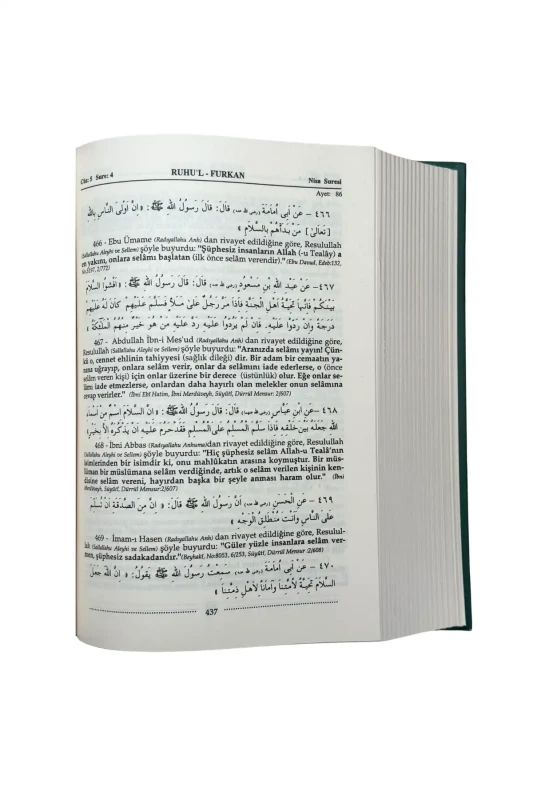 Cüz: 5 Sure: 4 RUHU'L - FURKAN Nisa Suresi
Ayet: 86
٤٦٦ – عَنْ أَبِى أُمَامَةَ (رضى الله عنه) قَالَ: قَالَ رَسُولُ اللهِ ﷺ : « اِنَّ اَوْلَى النَّاسِ بِاللهِ
[تَعَالَى] مَنْ بَدَأَهُمْ بِالسَّلَامِ »
466 - Ebu Ümame (Radıyallahu Anh) dan rivayet edildiğine göre, Resulullah
(Sallallahu Aleyhi ve Sellem) şöyle buyurdu: "Şüphesiz insanların Allah (-u Tealây) a
en yakını, onlara selâmı başlatan (ilk önce selâm verendir)." (Ebu Davud, Edeb:132,
No:5197, 2/772)
٤٦٧ – عَنْ عَبْدِ اللهِ بْنِ مَسْعُودٍ (رضى الله عنه) قَالَ: قَالَ رَسُولُ اللهِ ﷺ : « اَفْشُوا السَّلَامَ
بَيْنَكُمْ فَاِنَّهَا تَحِيَّةُ اَهْلِ الْجَنَّةِ فَاِذَا مَرَّ رَجُلٌ عَلَى مَلَاٍ فَسَلَّمَ عَلَيْهِمْ كَانَ لَهُ عَلَيْهِمْ
دَرَجَةٌ وَاِنْ رَدُّوا عَلَيْهِ. فَاِنْ لَمْ يَرُدُّوا عَلَيْهِ رَدَّ عَلَيْهِ مَنْ هُوَ خَيْرٌ مِنْهُمُ الْمَلٰئِكَةُ »
467 - Abdullah İbn-i Mes'ud (Radıyallahu Anh) dan rivayet edildiğine göre,
Resulullah (Sallallahu Aleyhi ve Sellem) şöyle buyurdu: "Aranızda selâmı yayın! Çün-
kü o, cennet ehlinin tahiyyesi (sağlık dileği) dir. Bir adam bir cemaatın ya-
nına uğrayıp, onlara selâm verir, onlar da selâmını iade ederlerse, o (önce
selâm veren kişi) için onlar üzerine bir derece (üstünlük) olur. Eğe onlar se-
lâmı iade etmezlerse, onlardan daha hayırlı olan melekler onun selâmına
cevap verirler." (İbni Ebî Hatim, İbni Merdûveyh, Süyûtî, Dürrül Mensur: 2/607)
٤٦٨ – عَنِ ابْنِ عَبَّاسٍ (رضى الله عنهما) قَالَ: قَالَ رَسُولُ اللهِ ﷺ : « اِنَّ السَّلَامَ اِسْمٌ مِنْ اَسْمَاءِ
اللهِ جَعَلَهُ بَيْنَ خَلْقِهِ فَاِذَا سَلَّمَ الْمُسْلِمُ عَلَى الْمُسْلِمِ فَقَدْ حَرُمَ عَلَيْهِ اَنْ يَذْكُرَهُ اِلَّا بِخَيْرٍ »
468 - İbni Abbas (Radıyallahu Anhuma) dan rivayet edildiğine göre, Resulullah
(Sallallahu Aleyhi ve Sellem) şöyle buyurdu: "Hiç şüphesiz selâm Allah-u Tealâ'nın
isimlerinden bir isimdir ki, onu mahlûkatın arasına koymuştur. Bir müs-
lüman bir müslümana selâm verdiğinde, artık o selâm verilen kişinin ken-
disine selâm vereni, hayırdan başka bir şeyle anması haram olur." (İbni
Merdûveyh, Süyûtî, Dürrül Mensur 2/607)
٤٦٩ – عَنِ الْحَسَنِ (رضى الله عنه) اَنَّ رَسُولَ اللهِ ﷺ قَالَ: « اِنَّ مِنَ الصَّدَقَةِ اَنْ تُسَلِّمَ
عَلَى النَّاسِ وَاَنْتَ مُنْطَلِقُ الْوَجْهِ »
469 - İmam-ı Hasen (Radıyallahu Anh) dan rivayet edildiğine göre, Resulul-
lah (Sallallahu Aleyhi ve Sellem) şöyle buyurdu: "Güler yüzle insanlara selâm ver-
men, şüphesiz sadakadandır." (Beyhakî, No:8053, 6/253, Süyûtî, Dürrül Mensur 2/608)
٤٧٠ – عَنْ اَبِى أُمَامَةَ (رضى الله عنه) سَمِعْتُ رَسُولَ اللهِ ﷺ يَقُولُ: « اِنَّ اللهَ جَعَلَ
السَّلَامَ تَحِيَّةً لِاُمَّتِنَا وَاَمَانًا لِاَهْلِ ذِمَّتِنَا »
437